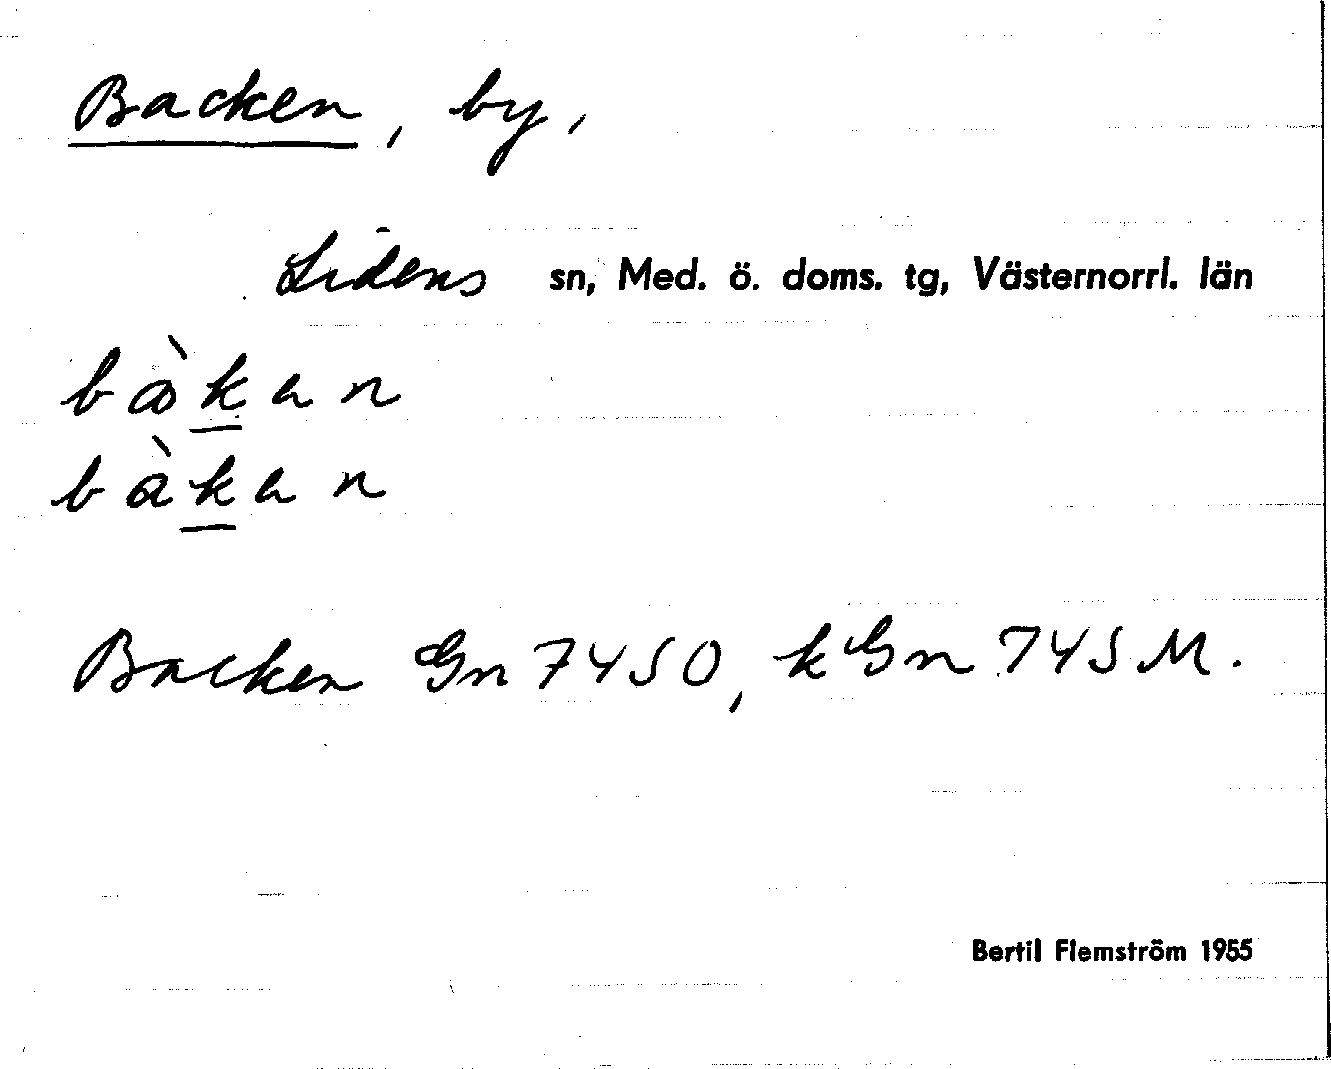 Backen, by,
Lidens sn, Med. ö. doms. tg, Västernorrl. län
bàkan
bàkan
Backen Gn 7450, k Gn 745 M.
Bertil Flemström 1955